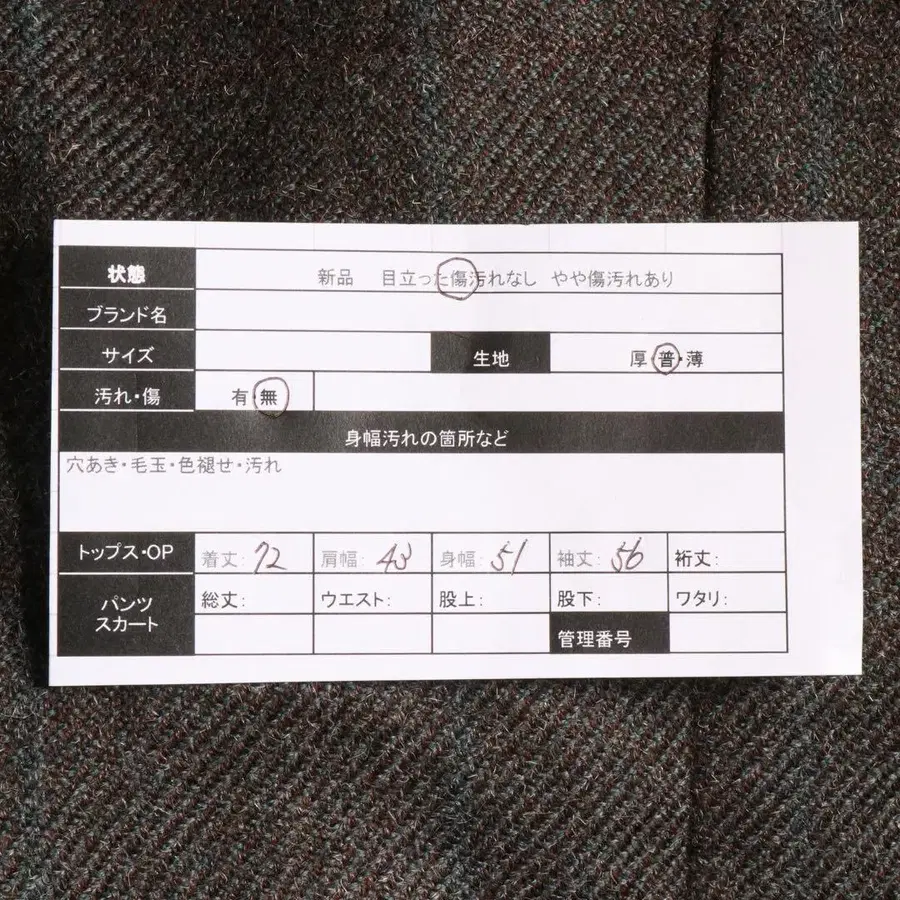 状態 新品 目立った傷汚れなし やや傷汚れあり
ブランド名
サイズ 生地 厚・普・薄
汚れ・傷 有・無
身幅汚れの箇所など
穴あき・毛玉・色褪せ・汚れ
トップス・OP 着丈: 72 肩幅: 43 身幅: 51 袖丈: 56 裄丈:
パンツ スカート 総丈: ウエスト: 股上: 股下: ワタリ:
管理番号